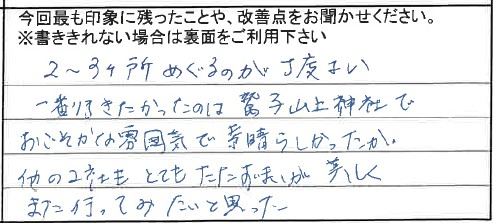 今回最も印象に残ったことや、改善点をお聞かせください。
※書ききれない場合は裏面をご利用下さい
2～3ヶ所 めぐるのが 丁度よい
一番行きたかったのは 鷲子山上神社で
おごそかな雰囲気で素晴らしかったが、
他の2社も とても たたずまいが 美しく
また行ってみたいと思った